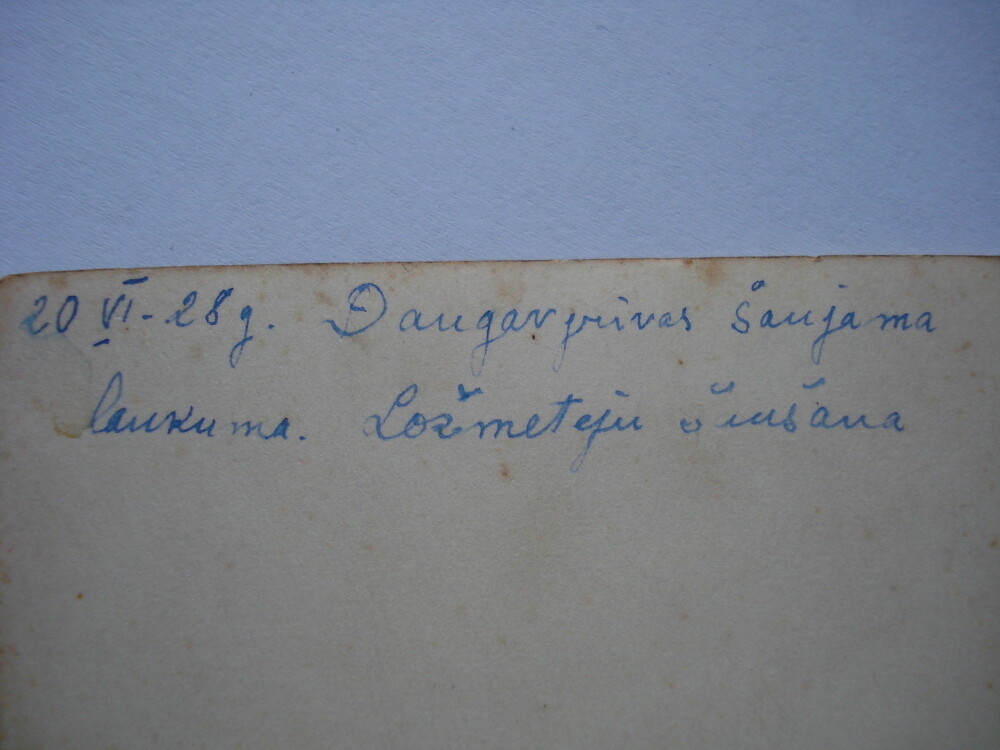 20 VI - 28 g. Daugavgrivas šaujama
laukuma. Ložmeteju šaušana